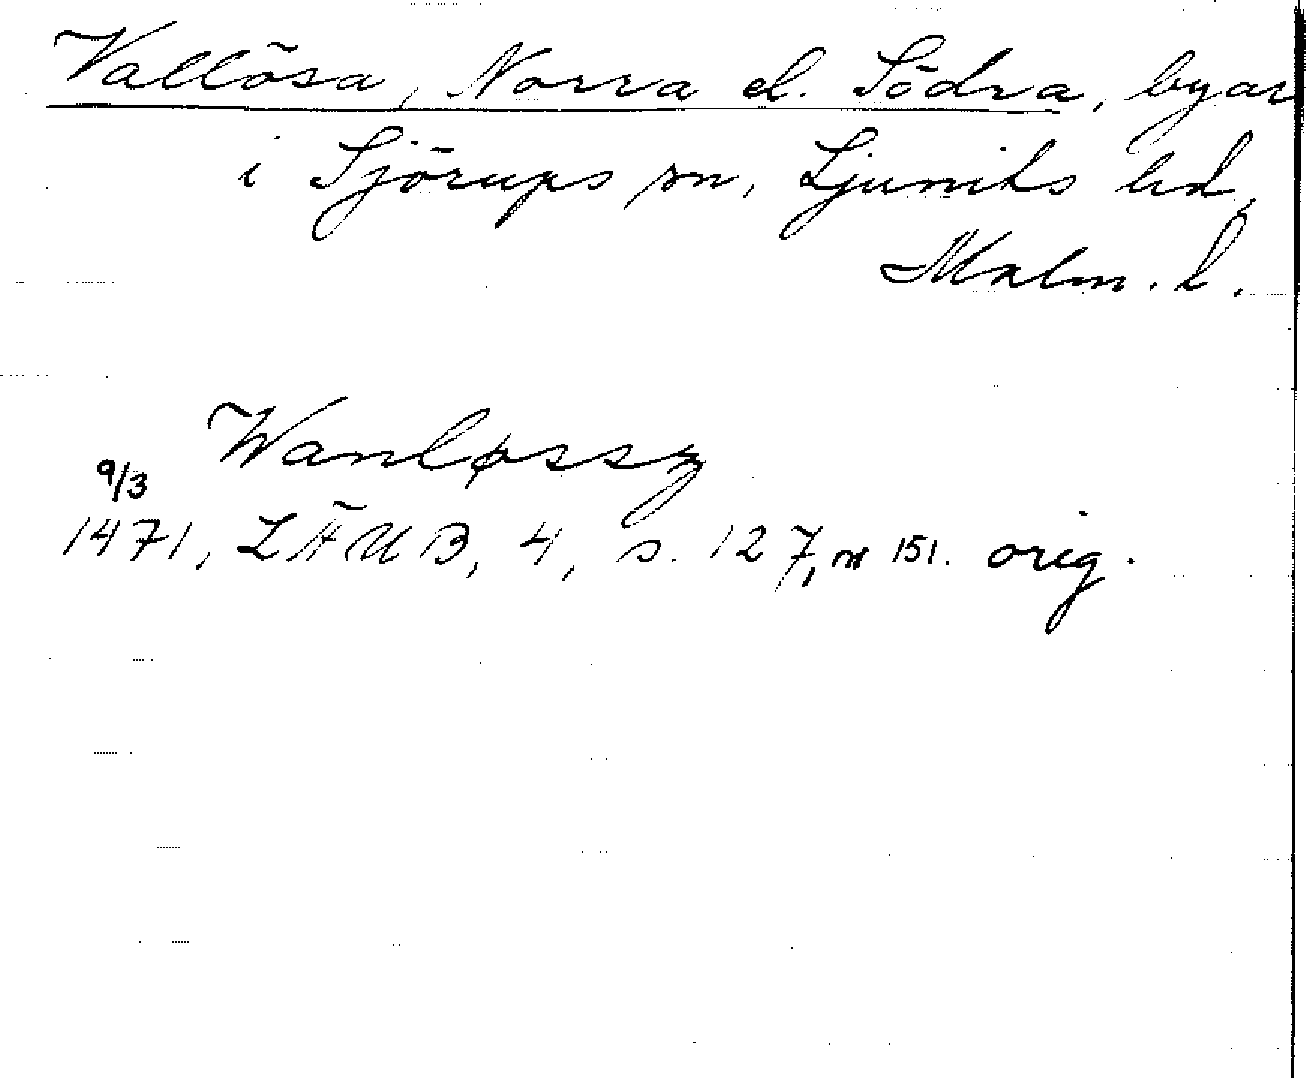 Vallösa, Norra el. Södra, byar
i Sjörups sn, Ljunits hd,
Malm. l.
Wanløssz
9/3
1471, LÄUB, 4, s. 127, nr 151. orig.